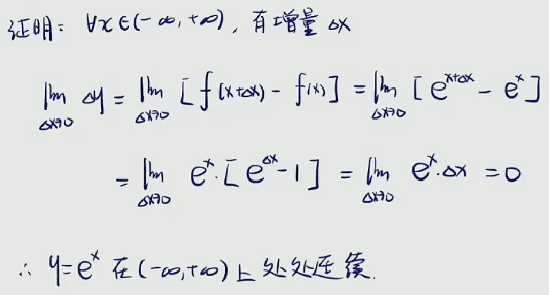 证明: ∀x∈(-∞,+∞), 有增量 Δx
lim_{Δx→0} Δy = lim_{Δx→0} [f(x+Δx) - f(x)] = lim_{Δx→0} [e^{x+Δx} - e^x]
= lim_{Δx→0} e^x·[e^{Δx} - 1] = lim_{Δx→0} e^x·Δx = 0
∴ y=e^x 在(-∞,+∞)上处处连续.